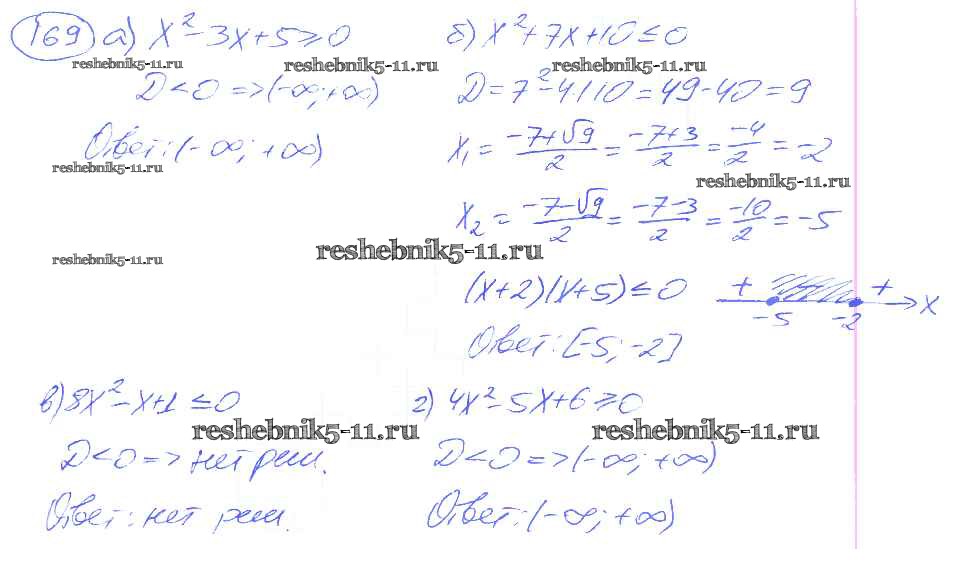 169 а) x² - 3x + 5 ≥ 0
reshebnik5-11.ru
reshebnik5-11.ru
D < 0 => (-∞; +∞)
Ответ: (-∞; +∞)
reshebnik5-11.ru
reshebnik5-11.ru
б) x² + 7x + 10 ≤ 0
reshebnik5-11.ru
D = 7² - 4·1·10 = 49 - 40 = 9
x₁ = (-7+√9)/2 = (-7+3)/2 = -4/2 = -2
reshebnik5-11.ru
x₂ = (-7-√9)/2 = (-7-3)/2 = -10/2 = -5
reshebnik5-11.ru
(x+2)(x+5) ≤ 0
+ +
-5 -2 x
Ответ: [-5; -2]
в) 8x² - x + 1 ≤ 0
reshebnik5-11.ru
D < 0 => нет реш.
Ответ: нет реш.
г) 4x² - 5x + 6 ≥ 0
reshebnik5-11.ru
D < 0 => (-∞; +∞)
Ответ: (-∞; +∞)